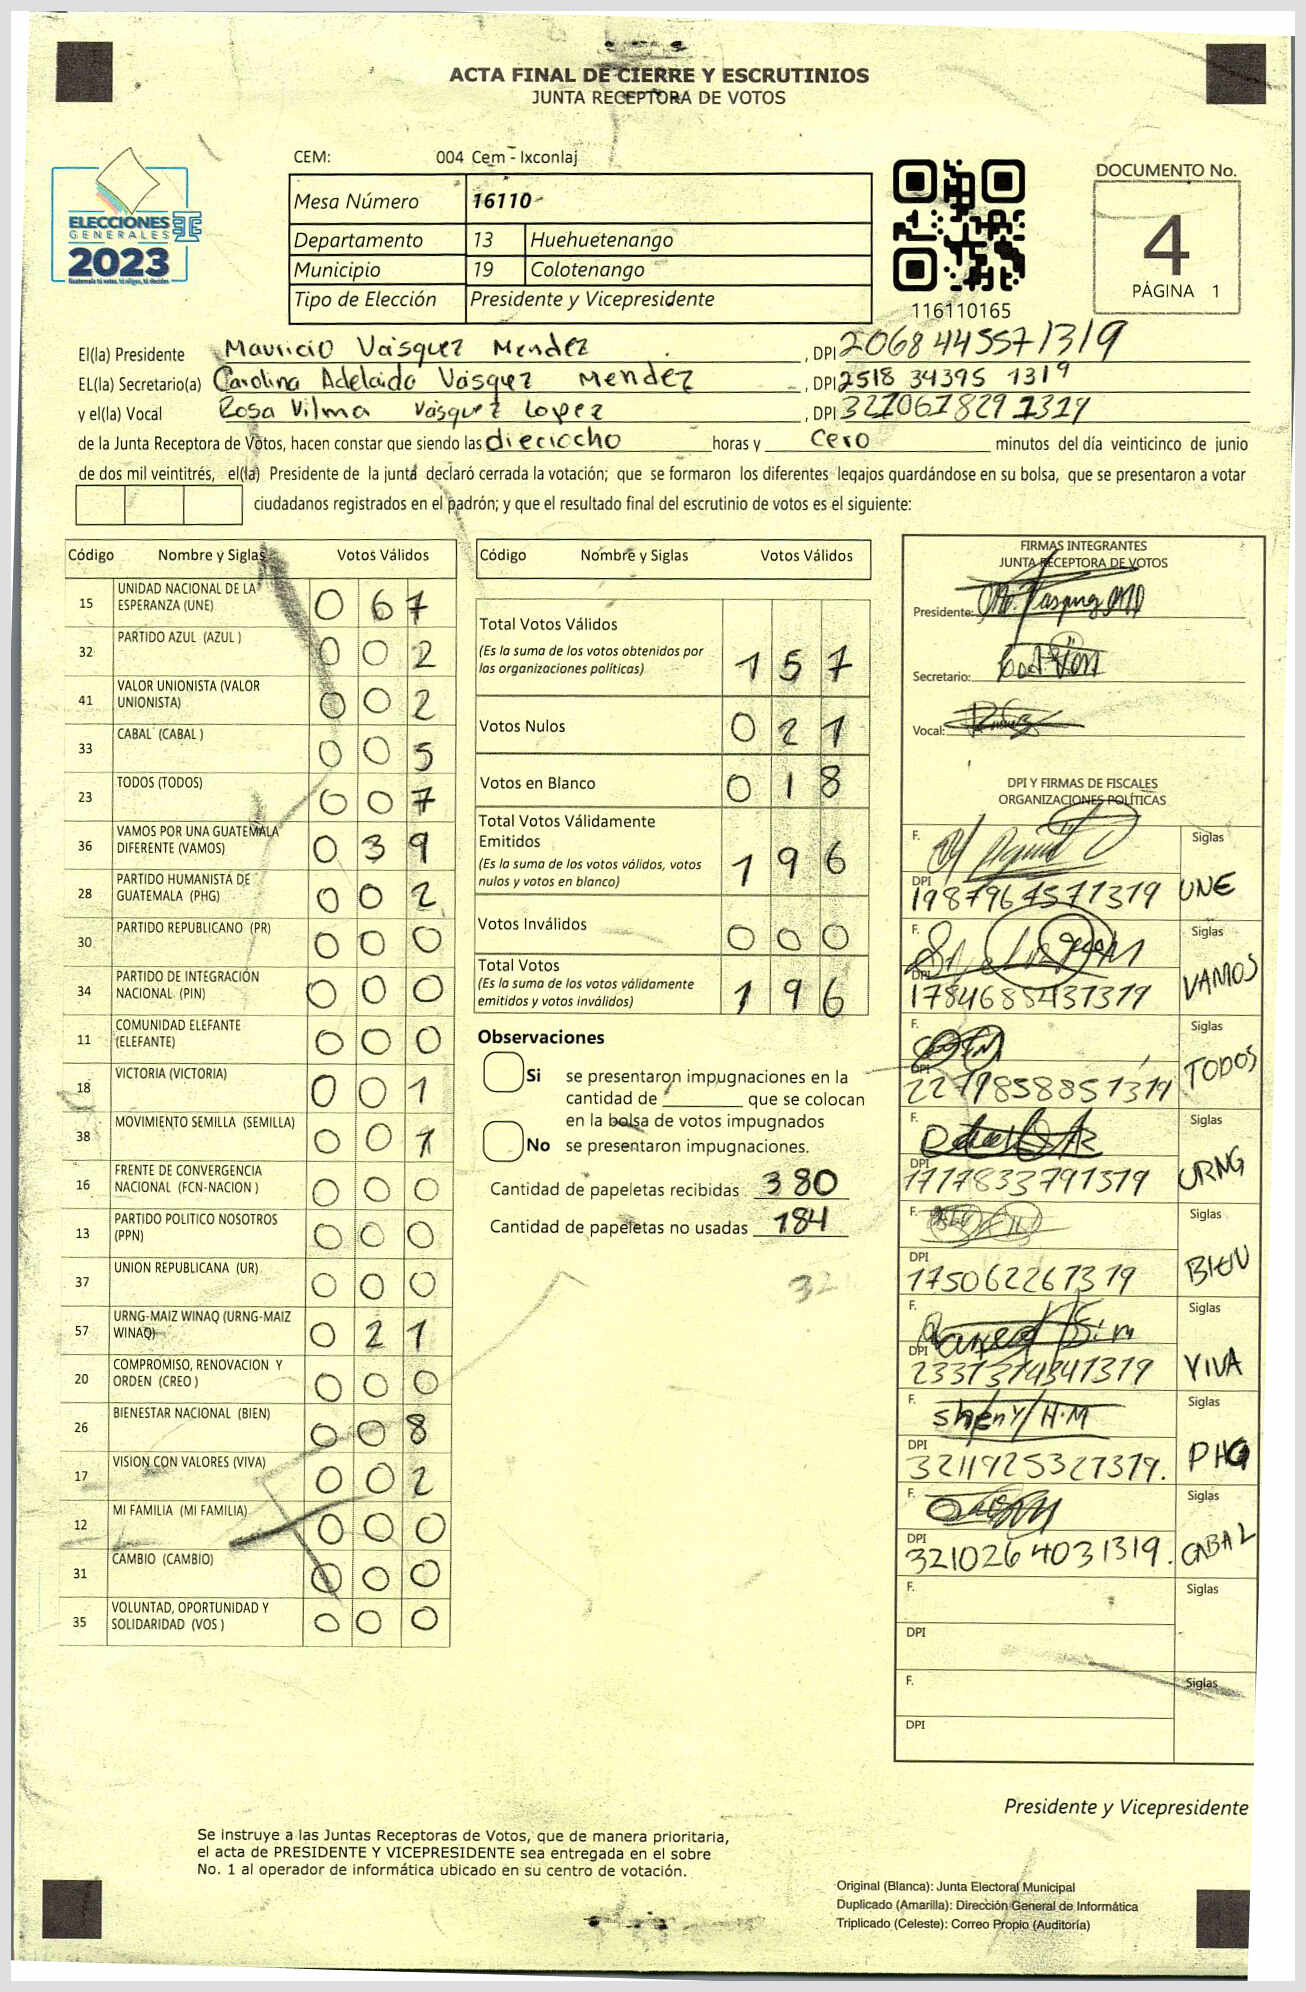 ACTA FINAL DE CIERRE Y ESCRUTINIOS
JUNTA RECEPTORA DE VOTOS
CEM: 004 Cem - Ixconlaj
ELECCIONES
GENERALES
2023
Guatemala tú votas, tú eliges, tú decides
Mesa Número 16110
Departamento 13 Huehuetenango
Municipio 19 Colotenango
Tipo de Elección Presidente y Vicepresidente
116110165
DOCUMENTO No.
4
PÁGINA 1
El(la) Presidente Mauricio Vásquez Mendez, DPI 2068 44557 1319
EL(la) Secretario(a) Carolina Adelaida Vásquez Mendez, DPI 2518 34395 1319
y el(la) Vocal Rosa Vilma Vásquez Lopez, DPI 3210678291319
de la Junta Receptora de Votos, hacen constar que siendo las dieciocho horas y cero minutos del día veinticinco de junio
de dos mil veintitrés, el(la) Presidente de la junta declaró cerrada la votación; que se formaron los diferentes legajos guardándose en su bolsa, que se presentaron a votar
ciudadanos registrados en el padrón; y que el resultado final del escrutinio de votos es el siguiente:
Código Nombre y Siglas Votos Válidos
15 UNIDAD NACIONAL DE LA ESPERANZA (UNE) 0 6 7
32 PARTIDO AZUL (AZUL ) 0 0 2
41 VALOR UNIONISTA (VALOR UNIONISTA) 0 0 2
33 CABAL (CABAL ) 0 0 5
23 TODOS (TODOS) 0 0 7
36 VAMOS POR UNA GUATEMALA DIFERENTE (VAMOS) 0 3 9
28 PARTIDO HUMANISTA DE GUATEMALA (PHG) 0 0 2
30 PARTIDO REPUBLICANO (PR) 0 0 0
34 PARTIDO DE INTEGRACIÓN NACIONAL (PIN) 0 0 0
11 COMUNIDAD ELEFANTE (ELEFANTE) 0 0 0
18 VICTORIA (VICTORIA) 0 0 1
38 MOVIMIENTO SEMILLA (SEMILLA) 0 0 1
16 FRENTE DE CONVERGENCIA NACIONAL (FCN-NACION ) 0 0 0
13 PARTIDO POLITICO NOSOTROS (PPN) 0 0 0
37 UNION REPUBLICANA (UR) 0 0 0
57 URNG-MAIZ WINAQ (URNG-MAIZ WINAQ) 0 2 1
20 COMPROMISO, RENOVACION Y ORDEN (CREO ) 0 0 0
26 BIENESTAR NACIONAL (BIEN) 0 0 8
17 VISION CON VALORES (VIVA) 0 0 2
12 MI FAMILIA (MI FAMILIA) 0 0 0
31 CAMBIO (CAMBIO) 0 0 0
35 VOLUNTAD, OPORTUNIDAD Y SOLIDARIDAD (VOS ) 0 0 0
Código Nombre y Siglas Votos Válidos
Total Votos Válidos
(Es la suma de los votos obtenidos por
las organizaciones políticas) 1 5 7
Votos Nulos 0 2 1
Votos en Blanco 0 1 8
Total Votos Válidamente
Emitidos
(Es la suma de los votos válidos, votos
nulos y votos en blanco) 1 9 6
Votos Inválidos 0 0 0
Total Votos
(Es la suma de los votos válidamente
emitidos y votos inválidos) 1 9 6
Observaciones
Si se presentaron impugnaciones en la
cantidad de que se colocan
en la bolsa de votos impugnados
No se presentaron impugnaciones.
Cantidad de papeletas recibidas 380
Cantidad de papeletas no usadas 184
FIRMAS INTEGRANTES
JUNTA RECEPTORA DE VOTOS
Presidente:
Secretario:
Vocal:
DPI Y FIRMAS DE FISCALES
ORGANIZACIONES POLÍTICAS
F. Siglas
DPI 1987967571319 UNE
F. Siglas
DPI 1784685431319 VAMOS
F. Siglas
DPI 2279858851319 TODOS
F. Siglas
DPI 1717833791319 URNG
F. Siglas
DPI 175062267319 BIEN
F. Siglas
DPI VIVA
F. Sheny H.M Siglas
DPI 3211925321319. PHG
F. Siglas
DPI 3210264031319. CABAL
F. Siglas
DPI
F. Siglas
DPI
Presidente y Vicepresidente
Se instruye a las Juntas Receptoras de Votos, que de manera prioritaria,
el acta de PRESIDENTE Y VICEPRESIDENTE sea entregada en el sobre
No. 1 al operador de informática ubicado en su centro de votación.
Original (Blanca): Junta Electoral Municipal
Duplicado (Amarilla): Dirección General de Informática
Triplicado (Celeste): Correo Propio (Auditoría)